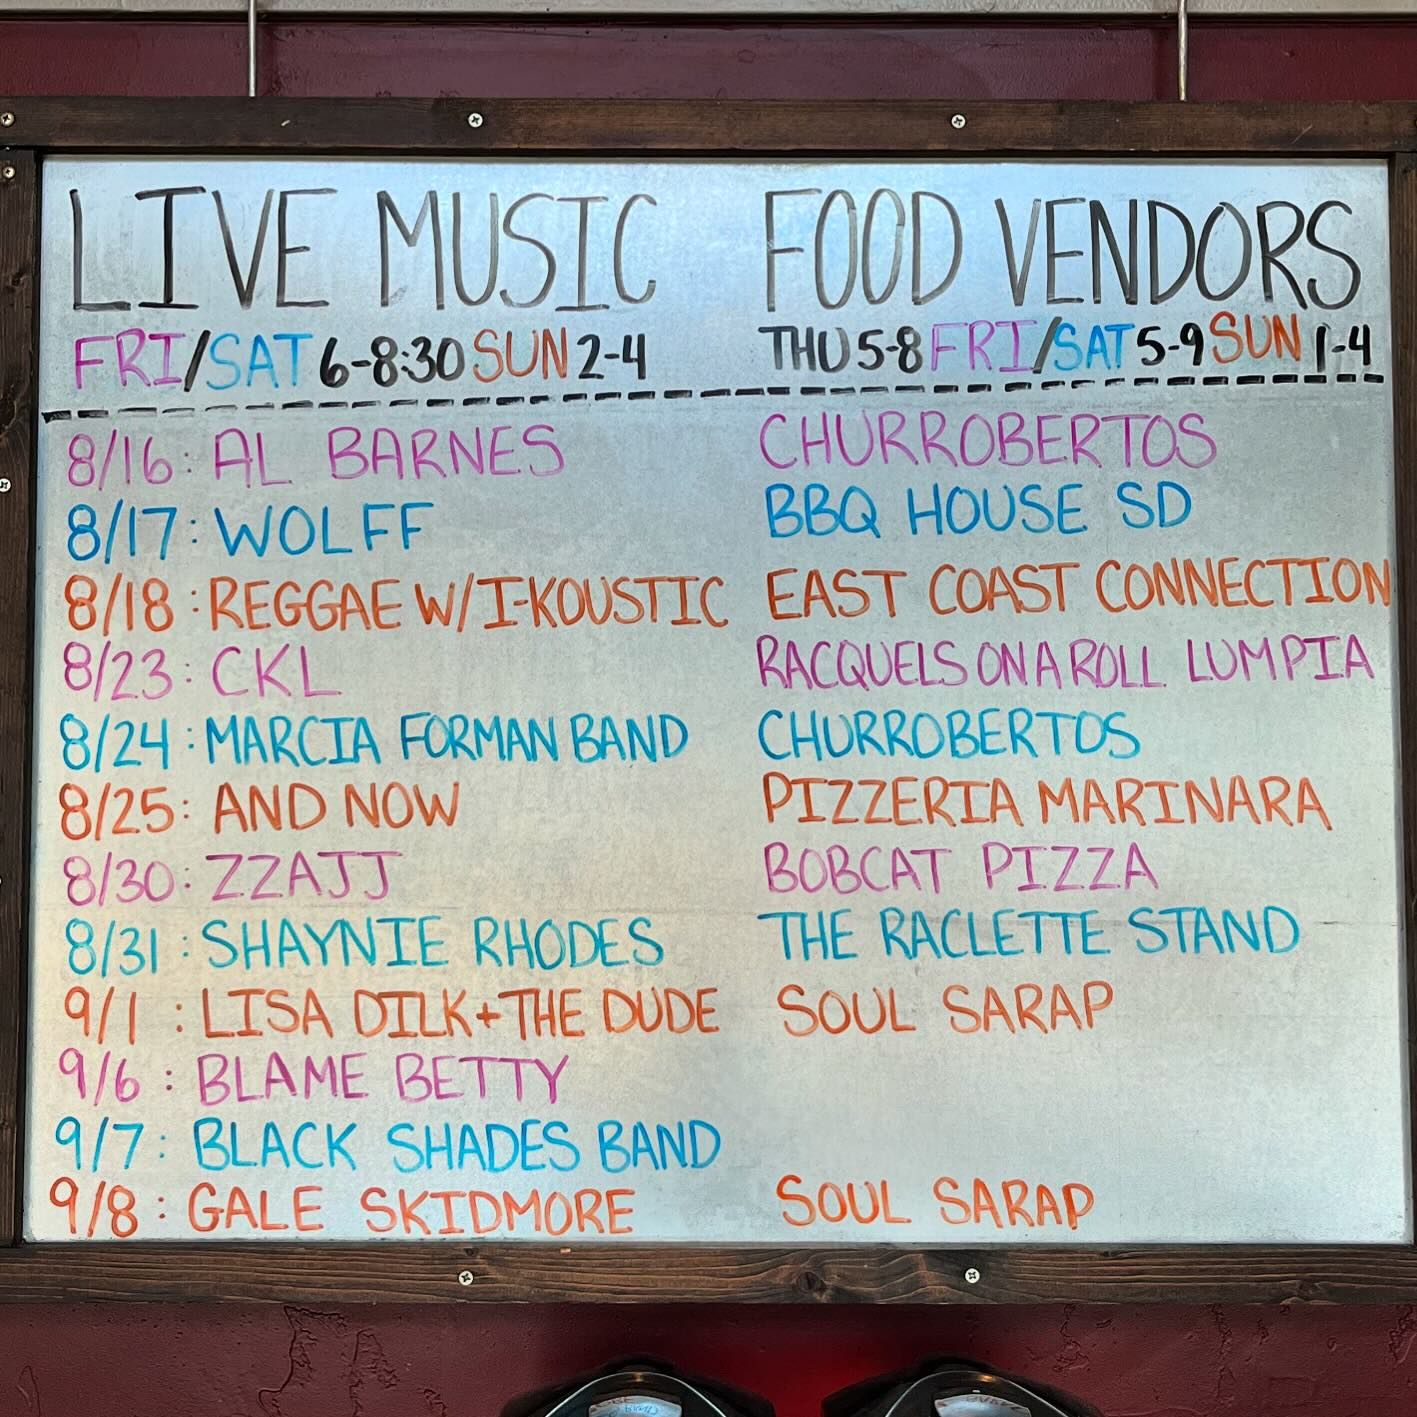 LIVE MUSIC FOOD VENDORS
FRI/SAT 6-8:30 SUN 2-4 THU 5-8 FRI/SAT 5-9 SUN 1-4
8/16: AL BARNES CHURROBERTOS
8/17: WOLFF BBQ HOUSE SD
8/18: REGGAE W/ I-KOUSTIC EAST COAST CONNECTION
8/23: CKL RACQUELS ON A ROLL LUMPIA
8/24: MARCIA FORMAN BAND CHURROBERTOS
8/25: AND NOW PIZZERIA MARINARA
8/30: ZZAJJ BOBCAT PIZZA
8/31: SHAYNIE RHODES THE RACLETTE STAND
9/1 : LISA DILK+THE DUDE SOUL SARAP
9/6 : BLAME BETTY
9/7: BLACK SHADES BAND
9/8: GALE SKIDMORE SOUL SARAP